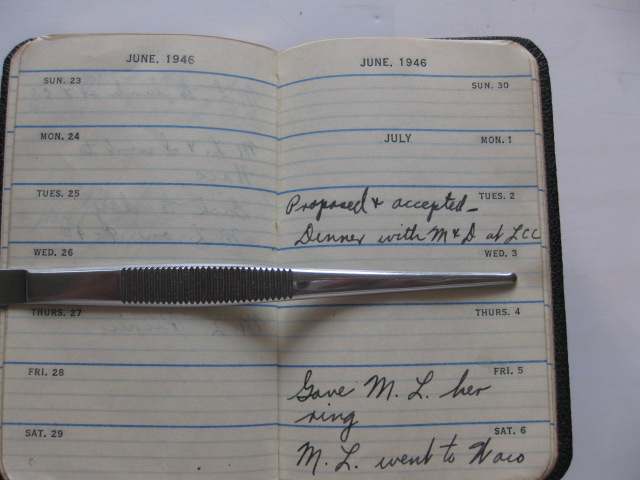 JUNE, 1946
SUN. 23
MON. 24
TUES. 25
WED. 26
THURS. 27
FRI. 28
SAT. 29
JUNE, 1946
SUN. 30
JULY
MON. 1
TUES. 2
Proposed & accepted -
Dinner with M & D at LCC
WED. 3
THURS. 4
FRI. 5
Gave M. L. her
ring
SAT. 6
M. L. went to Waco